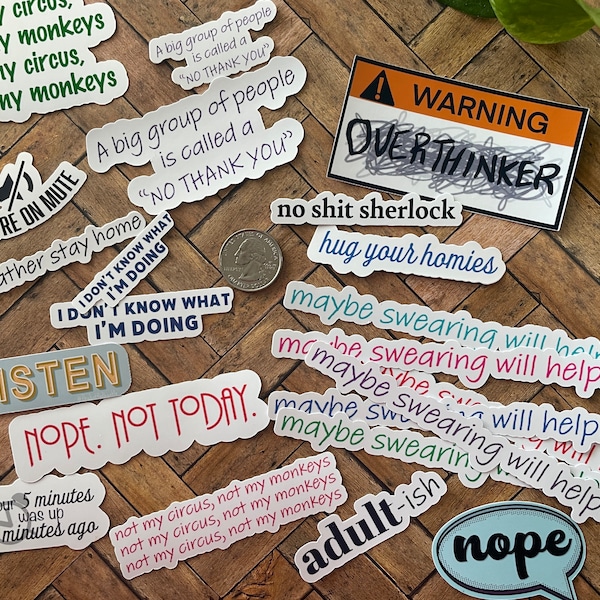 not my monkeys
my circus,
my monkeys
A big group of people
is called a
"NO THANK YOU"
A big group of people
is called a
"NO THANK YOU"
WARNING
OVERTHINKER
RE ON MUTE
no shit sherlock
hug your homies
ather stay home
I DON'T KNOW WHAT
I'M DOING
I DON'T KNOW WHAT
I'M DOING
maybe swearing will help
maybe swearing will help
maybe swearing will help
maybe swearing will help
maybe swearing will help
maybe swearing will help
ISTEN
NOPE. NOT TODAY.
our 5 minutes
was up
minutes ago
not my circus, not my monkeys
not my circus, not my monkeys
not my circus, not my monkeys
adult-ish
nope